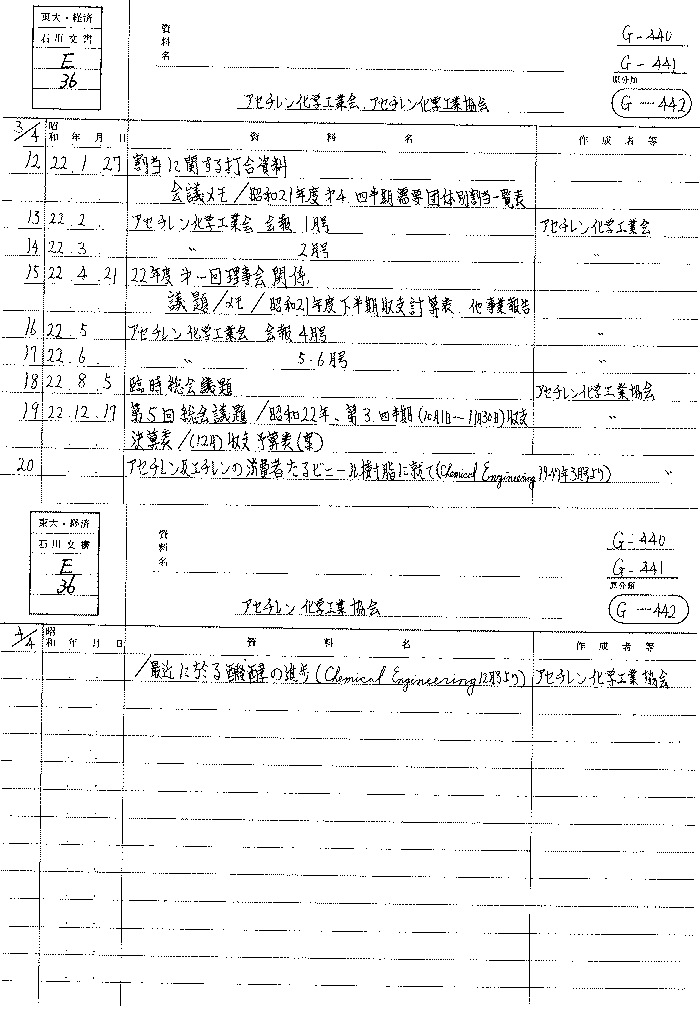 東大・経済
石川文書
E
36
資料名
G-440
G-441
原分類
G-442
アセチレン化学工業会、アセチレン化学工業協会
3/4 昭和 年 月 日 資 料 名 作 成 者 等
12 22. 1. 27 割当に関する打合資料
会議メモ/昭和21年度第4.四半期需要団体別割当一覧表
13 22. 2. アセチレン化学工業会 会報 1月号 アセチレン化学工業会
14 22. 3. 〃 2月号 〃
15 22. 4. 21 22年度第一回理事会関係
議題/メモ/昭和21年度下半期収支計算表 他事業報告
16 22. 5 アセチレン化学工業会 会報 4月号 〃
17 22. 6. 〃 5.6月号 〃
18 22. 8. 5 臨時総会議題 アセチレン化学工業協会
19 22. 12. 17 第5回総会議題/昭和22年、第3.四半期(10月1日〜11月30日)収支 〃
決算表/(12月)収支予算表(案)
20 アセチレン及エチレンの消費者たるビニール樹脂に就て(Chemical Engineering 1947年3月号より) 〃
東大・経済
石川文書
E
36
資料名
G-440
G-441
原分類
G-442
アセチレン化学工業協会
4/4 昭和 年 月 日 資 料 名 作 成 者 等
/最近に於る醗酵の進歩(Chemical Engineering 12月号より) アセチレン化学工業協会